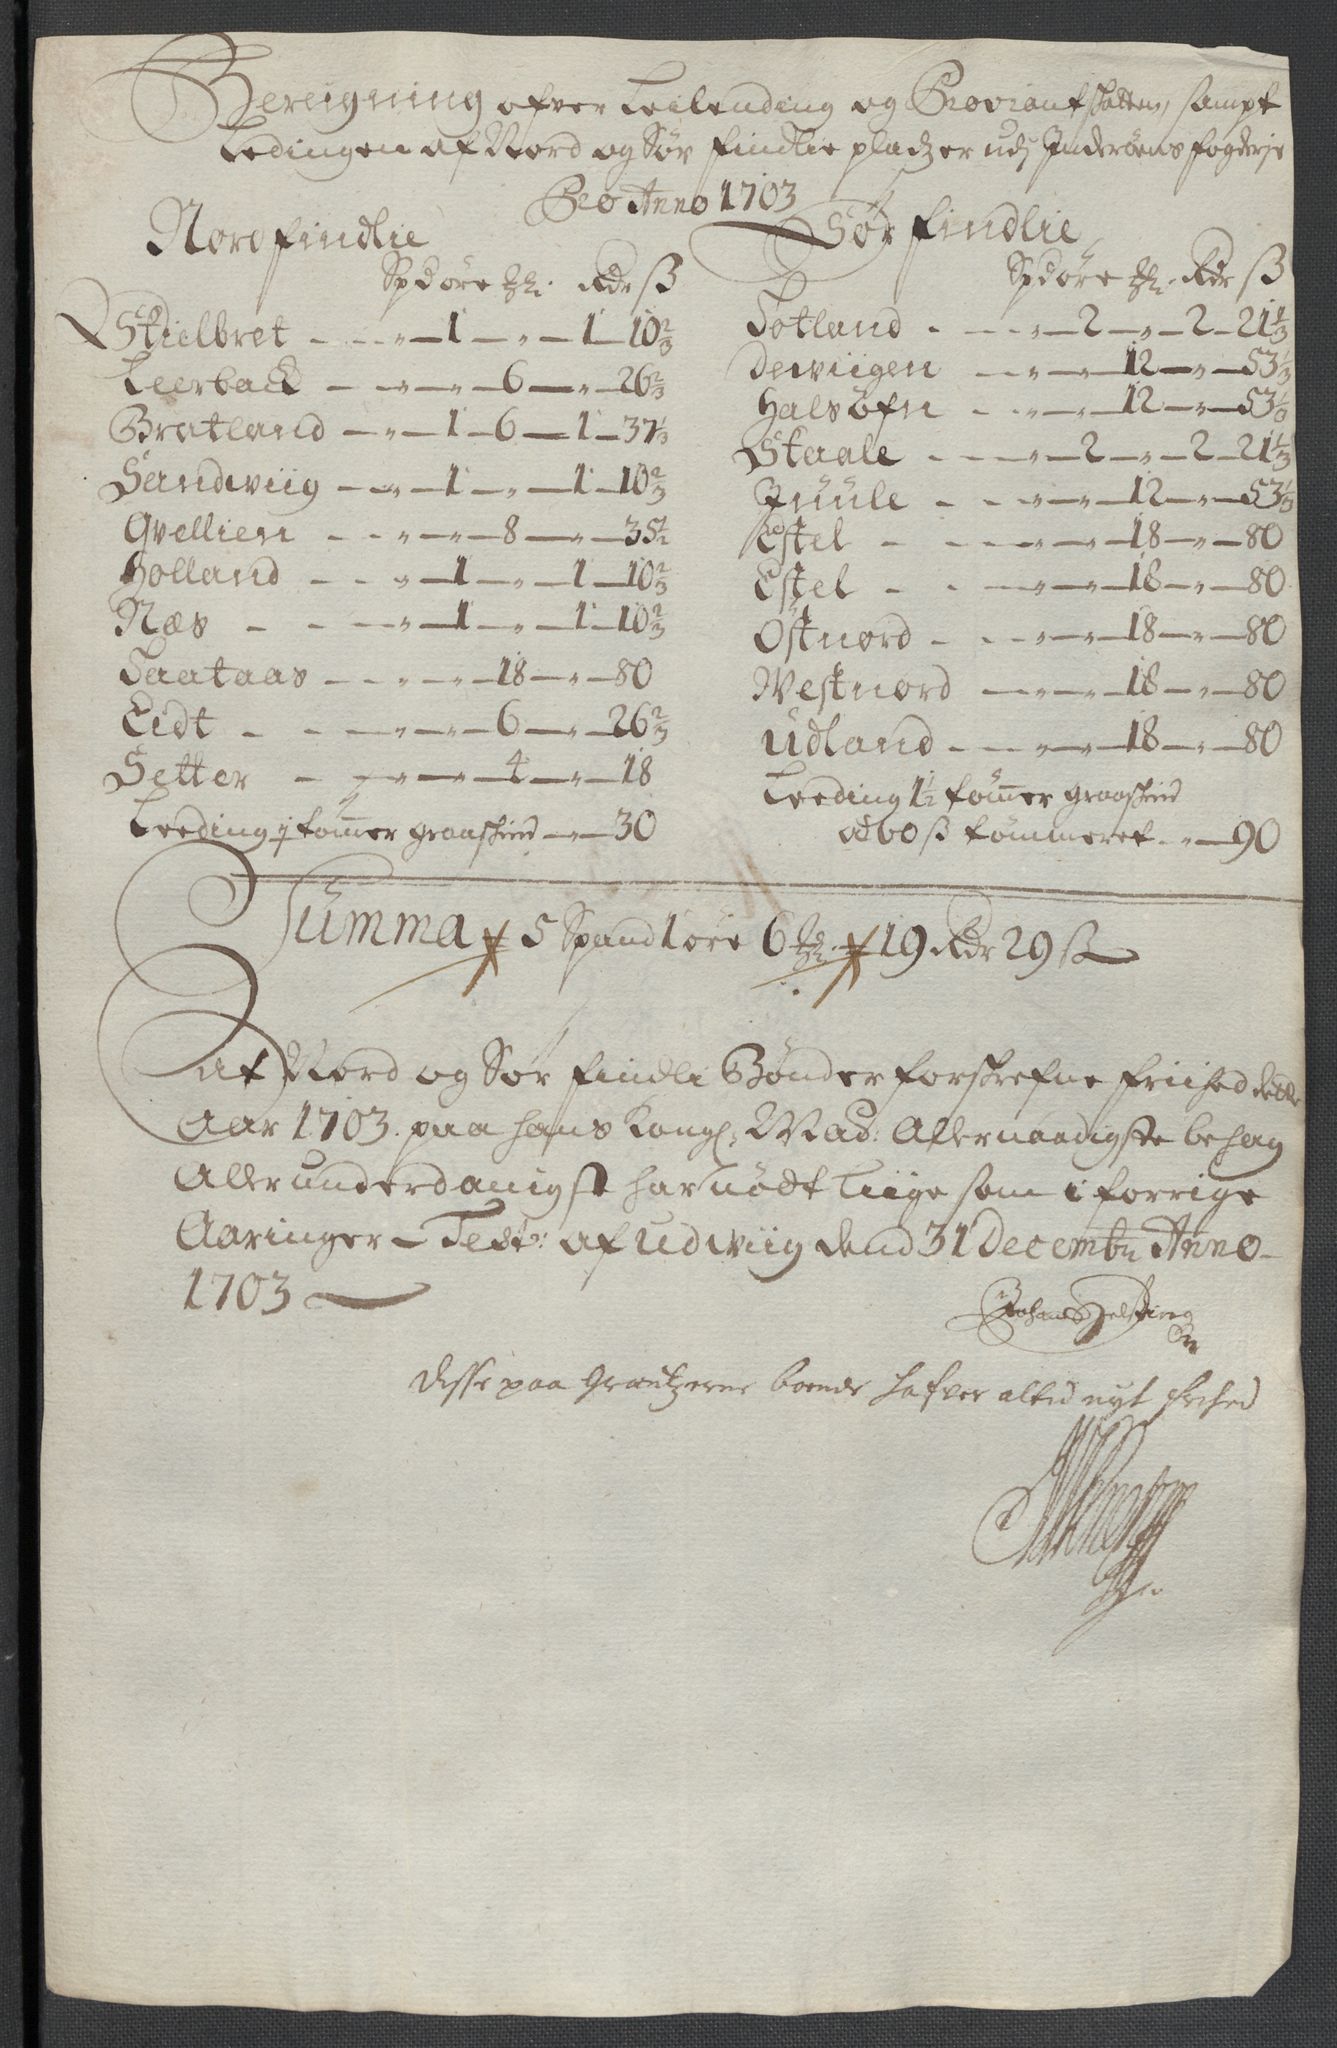 Bereigning ofver Leilending og Proviantskatten, sampt
Ledingen af Nord og Sør findlie pladzer udj Inderøens fogderje
Pro Anno 1703
Nord findlie
Spd øre ℔ Rdr ß
Skielbret - - „ - 1 - „ - 1 - 10 2/3
Leerback - „ - „ - 6 - „ - 26 2/3
Bratland - „ - 1 - 6 - 1 - 37 1/3
Sandwiig - „ - 1 - „ - 1 - 10 2/3
Qvellien - „ - „ - 8 - „ - 35 1/2
Holland - - „ - 1 - „ - 1 - 10 2/3
Næs - - „ - 1 - „ - 1 - 10 2/3
Saataas - - „ - „ - 18 - „ - 80
Eidt - - „ - „ - 6 - „ - 26 2/3
Setter - „ - „ - 4 - „ - 18
Leeding 1/2 tømer graaskind - „ - 30
Sør findlie
Spd øre ℔ Rdr ß
Totland - - „ - 2 - „ - 2 - 21 1/3
Devviigen - „ - „ - 12 - „ - 53 1/3
Halsøfn - „ - „ - 12 - „ - 53 1/3
Staale - - „ - 2 - „ - 2 - 21 1/3
Juule - - „ - „ - 12 - „ - 53 1/3
Estel - - „ - „ - 18 - „ - 80
Estel - - „ - „ - 18 - „ - 80
Østnord - - „ - „ - 18 - „ - 80
Westnord - „ - „ - 18 - „ - 80
Udland - - „ - „ - 18 - „ - 80
Leeding 1 1/2 tømer graaskind
a 60 ß tømmeret - „ - 90
Summa 5 Spand 1 øre 6 ℔ 19 Rdr 29 ß
At Nord og Sør findli Bønder forskrefne friihed dette
Aar 1703. paa hans Kongl: Maÿ: Allernaadigste behag
Allerunderdanigst har nødt liige som i forrige
Aaringer - Test: af Udwiig dend 31 Decembr Anno
1703
disse paa Grentzerne boende hafver altid nyt frihed